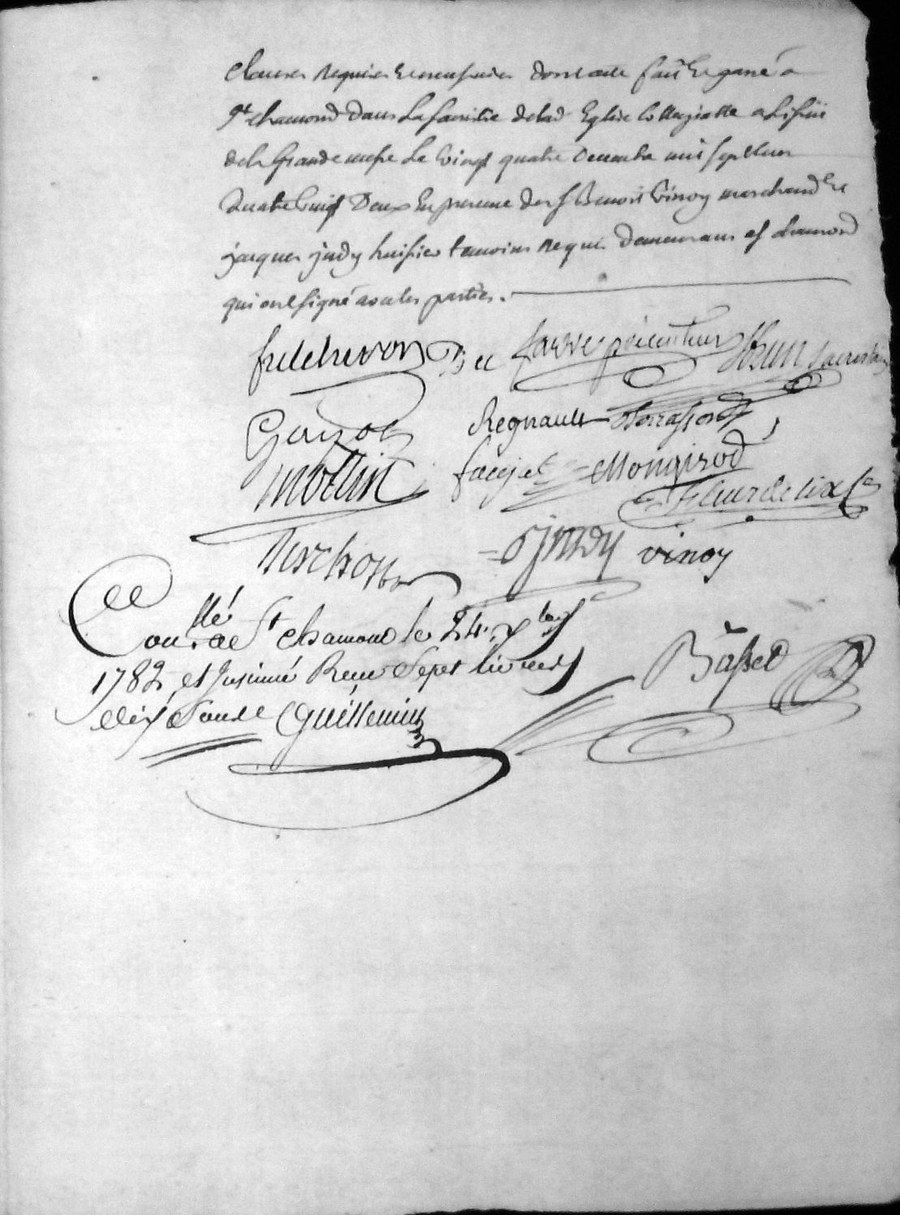 clauses requises et necessaires dont acte fait et passé a
St chamond dans La sacristie de lad Eglise Collegialle a L'issüe
de la Grande messe Le vingt quatre Decembre mil sept Cent
Quatre vingt Deux En presence de s Benoit vinoy marchand et
jacques judy huissier temoins Requis demeurans a St chamond
qui ont signé avec les parties.
fulcheron D
favre précenteur
thun sacristain
Guyot
Regnault terrasson
mollin
faejat Mongirod
fleurdelix
terchon
judy vinoy
llé
Con a St chamond le 24. xbre
1782 et Insinué Reçu Sept livres
dix sous Guillemin
Basset